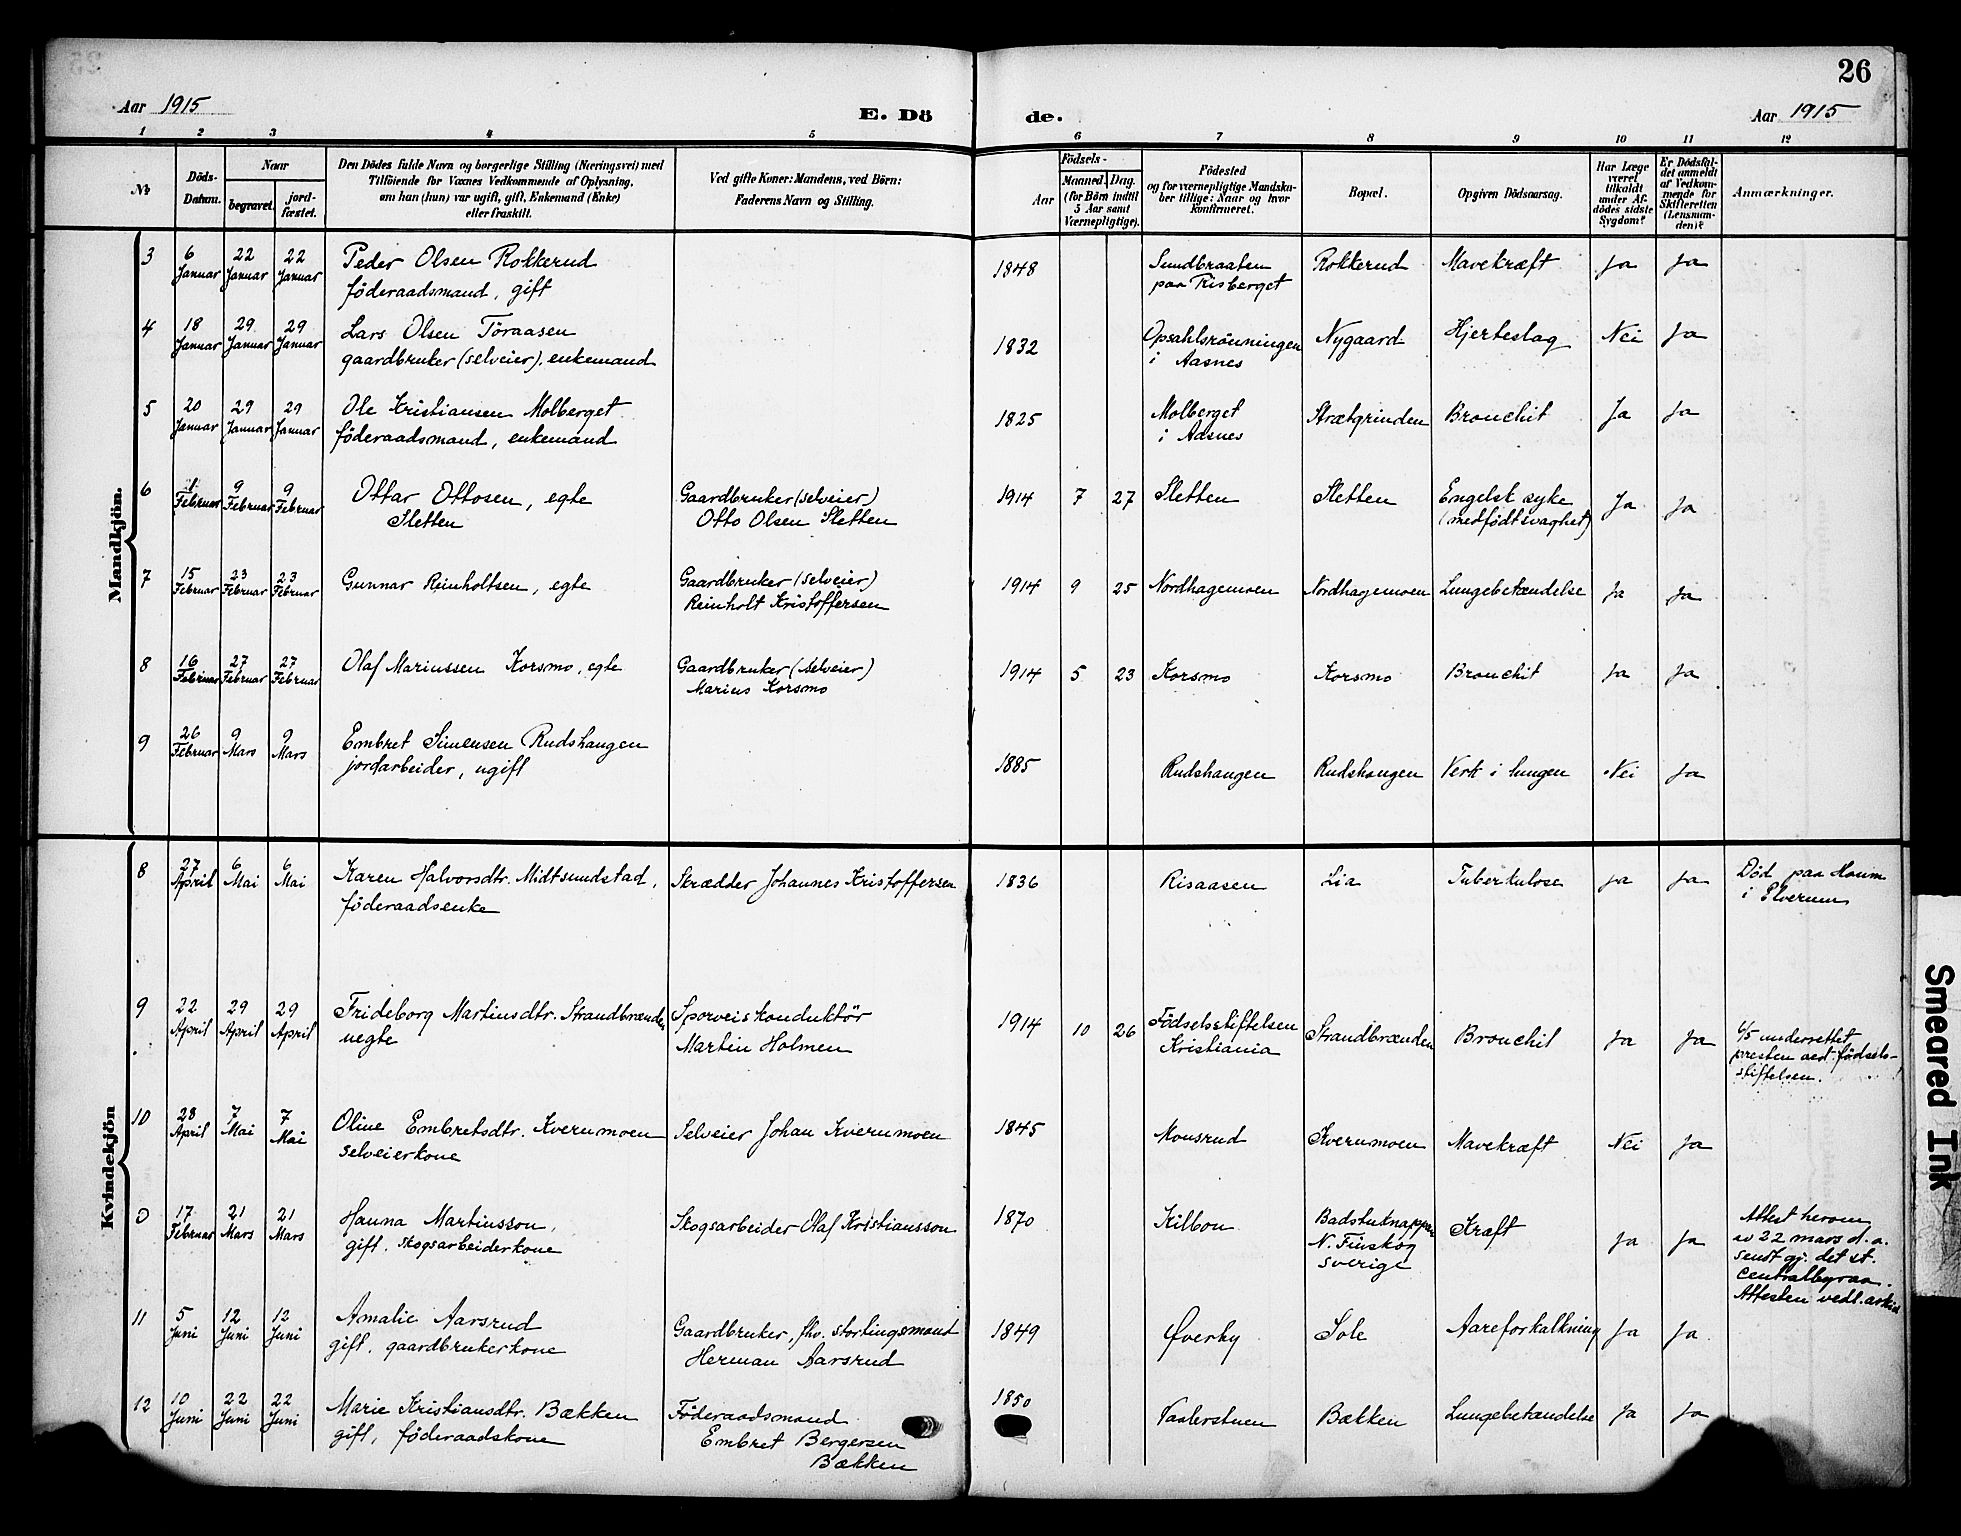 26
Aar 1915
E. Dö
de.
Aar 1915
1 2 3 4 5 6 7 8 9 10 11 12
No
Döds-
Datum.
Naar
begravet.
jord-
fæstet.
Den Dödes fulde Navn og borgerlige Stilling (Næringsvei) med
Tilföiende for Vaxnes Vedkommende af Oplysning,
om han (hun) var ugift, gift, Enkemand (Enke)
eller fraskilt.
Ved gifte Koner: Mandens, ved Börn:
Faderens Navn og Stilling.
Födsels-
Aar
Maaned.
Dag.
(for Börn indtil
5 Aar samt
Værnepligtige).
Födested
og for værnepligtige Mandska-
ber tillige: Naar og hvor
konfirmeret.
Bopæl.
Opgiven Dödsaarsag.
Har Læge
været
tilkaldt
under Af-
dödes sidste
Sygdom?
Er Dödsfal-
det anmeldt
af Vedkom-
mende for
Skifteretten
(Lensman-
den)?
Anmærkninger.
Mandkjön.
3 6 Januar 22 Januar 22 Januar Peder Olsen Rokkerud
föderaadsmand, gift
1848 Sundbraaten
paa Risberget
Rokkerud Mavekræft Ja Ja
4 18 Januar 29 Januar 29 Januar Lars Olsen Töraasen
gaardbruker (selveier), enkemand
1832 Opsahlsrönningen
i Aasnes
Nygaard Hjerteslag Nei Ja
5 20 Januar 29 Januar 29 Januar Ole Kristiansen Molberget
föderaadsmand, enkemand
1825 Molberget
i Aasnes
Strætgrinden Bronchit Ja Ja
6 1 Februar 9 Februar 9 Februar Ottar Ottosen, egte
Sletten
Gaardbruker (selveier)
Otto Olsen Sletten
1914 7 27 Sletten Sletten Engelsk syke
(medfödt svaghet)
Ja Ja
7 15 Februar 23 Februar 23 Februar Gunnar Reinholtsen, egte
Gaardbruker (selveier)
Reinholt Kristoffersen
1914 9 25 Nordhagemoen Nordhagemoen Lungebetændelse Ja Ja
8 16 Februar 27 Februar 27 Februar Olaf Mariussen Korsmo, egte
Gaardbruker (selveier)
Marius Korsmo
1914 5 23 Korsmo Korsmo Bronchit Ja Ja
9 26 Februar 9 Mars 9 Mars Embret Simensen Rudshaugen
jordarbeider, ugift
1885 Rudshaugen Rudshaugen Verk i lungen Nei Ja
Kvindekjön
8 27 April 6 Mai 6 Mai Karen Halvorsdtr. Midtsundstad,
föderaadsenke
Skrædder Johannes Kristoffersen
1836 Risaasen Lia Tuberkulose Ja Ja Död paa
i Elverum
9 22 April 29 April 29 April Frideborg Martinsdtr. Strandbrænden
uegte
Sporveiskonduktör
Martin Holmen
1914 10 26 Födselsstiftelsen
Kristiania
Strandbrænden Bronchit Ja Ja 6/5 underrettet
presten ved födsels-
stiftelsen.
10 28 April 7 Mai 7 Mai Oline Embretsdtr. Kvernmoen
selveierkone
Selveier Johan Kvernmoen
1845 Monsrud Kvernmoen Mavekræft Nei Ja
0 17 Februar 21 Mars 21 Mars Hanna Martinsson,
gift, skogsarbeiderkone
Skogsarbeider Olaf Kristiansson
1870 Kilbon Badstuknappen
N. Finskog
Sverige
Kræft Ja Ja Attest herom
av 22 mars d. a.
sendt gj. det st.
Centralbyraa.
Attesten vedl. arkiv
11 5 Juni 12 Juni 12 Juni Amalie Aarsrud
gift, gaardbrukerkone
Gaardbruker, fhv. stortingsmand
Herman Aarsrud
1849 Øverby Sole Aareforkalkning Ja Ja
12 10 Juni 22 Juni 22 Juni Marie Kristiansdtr. Bækken
gift, föderaadskone
Föderaadsmand
Embret Bergersen
Bækken
1850 Vaalerstuen Bækken Lungebetændelse Ja Ja
Smeared Ink